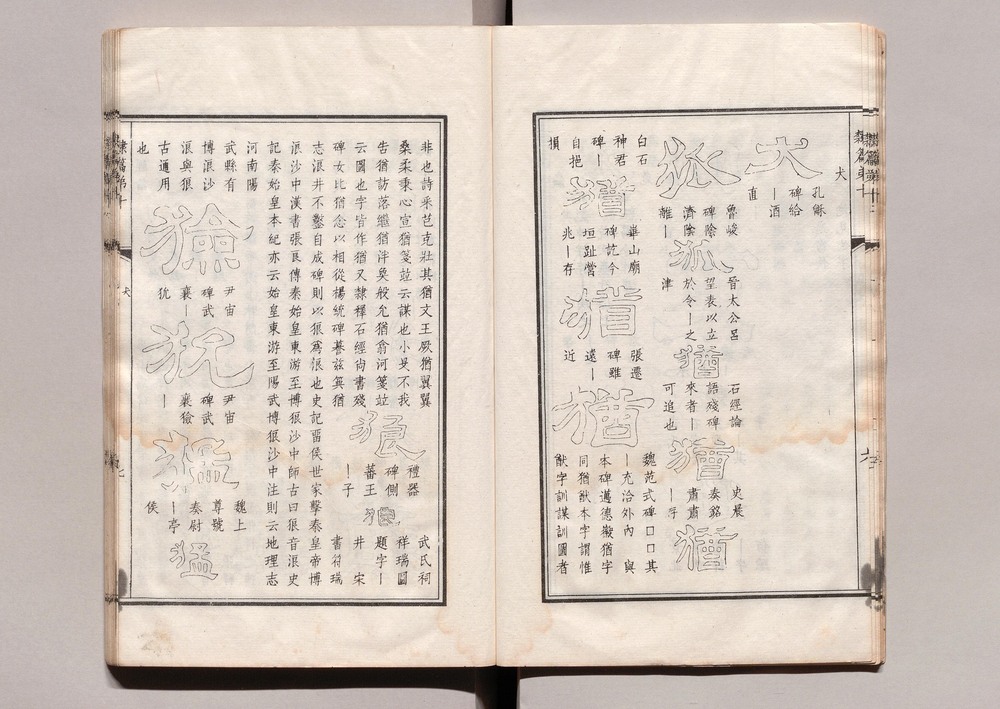 犬
犬
孔龢
碑給
ー酒
直
狐
魯峻
碑陰
濟陰
離ー
狐
晉太公呂
望表以立
於令ー之
津
猶
石經論
語殘碑
來者ー
可追也
猶
史晨
奏銘
肅肅
ー乎
猶
白石
神君
碑ー
自挹
損
猶
華山廟
碑訖今
垣趾營
兆ー存
猶
張遷
碑雖
遠ー
近
猶
魏范式碑口口其
ー充洽外內 與
本碑邁德徽猶字
同猶猷本字謂惟
猷字訓謀訓圖者
非也詩采芑克壯其猶文王厥猶翼翼
桑柔秉心宣猶箋竝云謀也小旻不我
告猶訪落繼猶泮奐般允猶翕河箋竝
云圖也字皆作猶又隸釋石經尚書殘
碑女比猶念以相從楊統碑慕兹奐猶
狼
禮器
碑側
蕃王
ー子
狼
武氏祠
祥瑞圖
題字ー
井 宋
書符瑞
志浪井不鑿自成碑則以狼爲浪也史記畱侯世家擊秦皇帝博
浪沙中漢書張良傳秦始皇東游至博狼沙中師古曰狼音浪史
記秦始皇本紀亦云始皇東游至陽武博狼沙中注則云地理志
河南陽
武縣有
博浪沙
浪與狼
古通用
也
獫
尹宙
碑武
襄ー
狁
狁
尹宙
碑武
襄獫
ー
猛
魏上
尊號
奏尉
ー亭
侯
猛